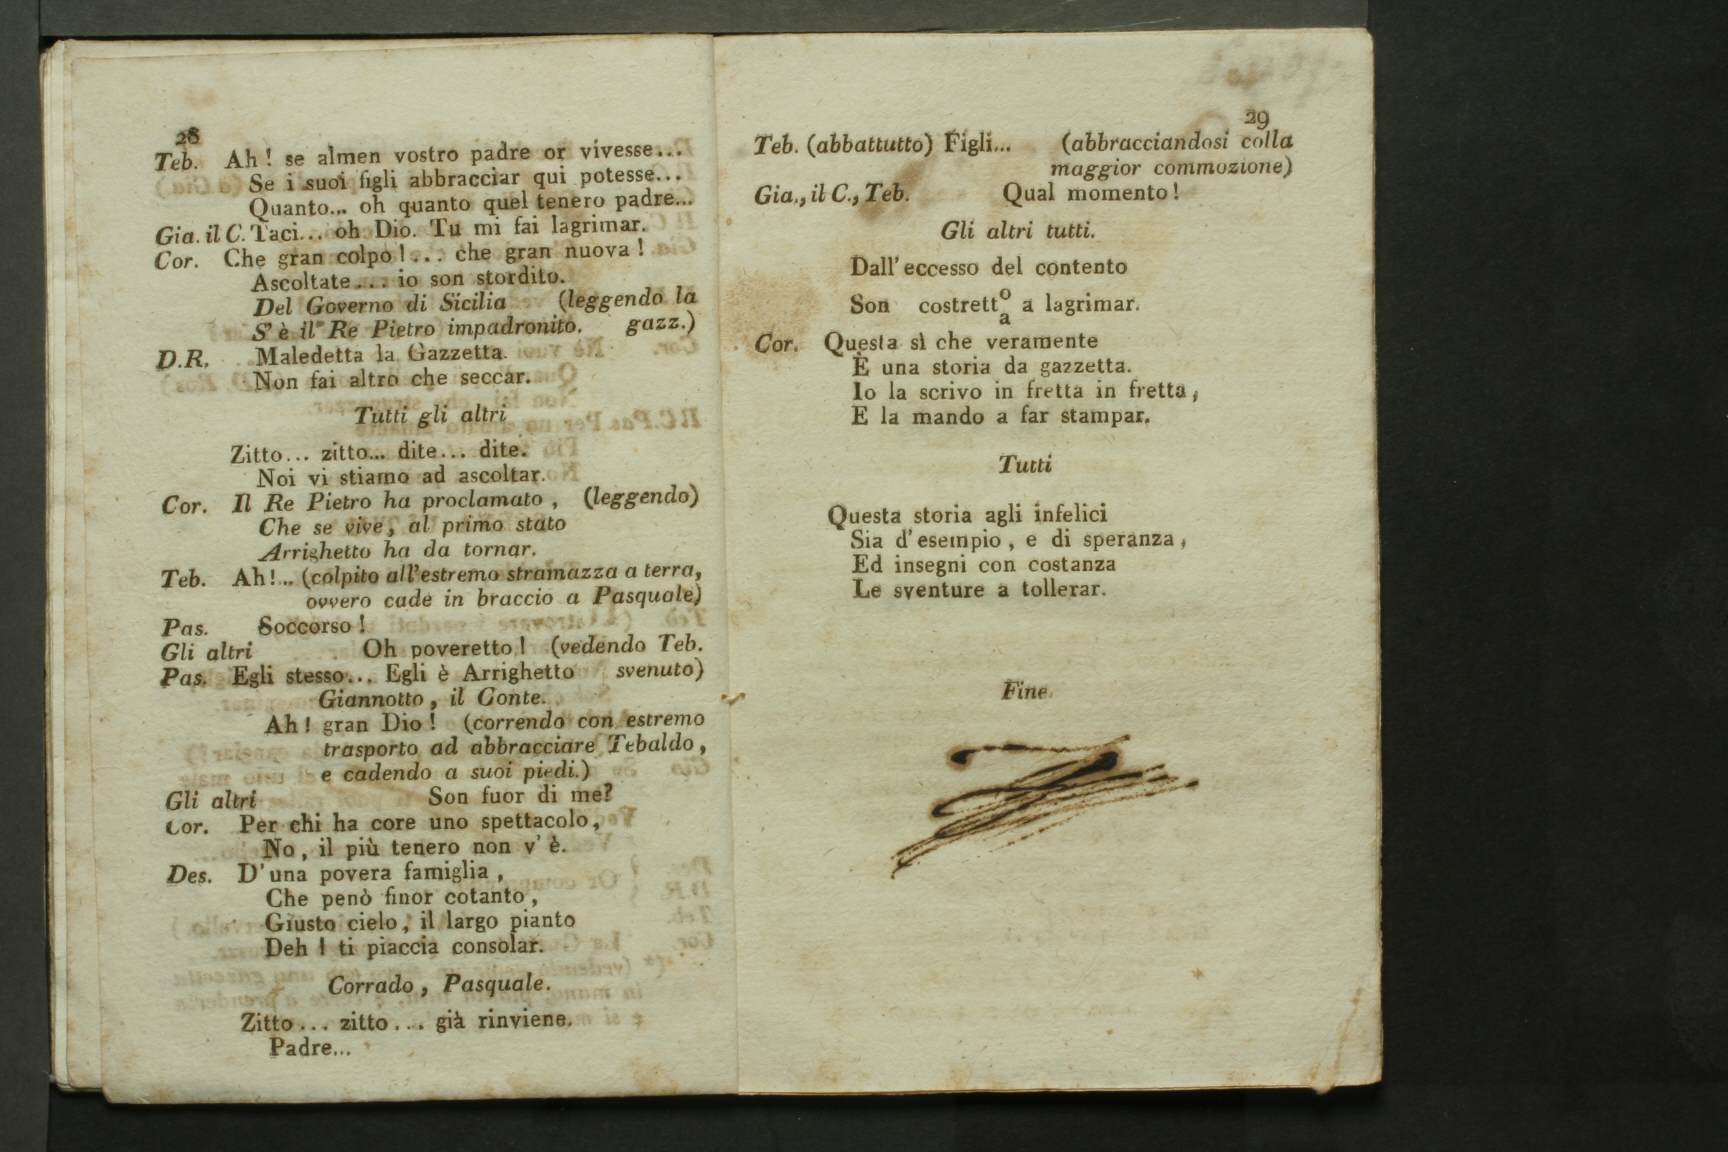 28
Teb. Ah! se almen vostro padre or vivesse...
Se i suoi figli abbracciar qui potesse...
Quanto... oh quanto quel tenero padre...
Gia. il C. Taci... oh Dio. Tu mi fai lagrimar.
Cor. Che gran colpo!... che gran nuova!
Ascoltate... io son stordito.
Del Governo di Sicilia (leggendo la
S'è il Re Pietro impadronito. gazz.)
D.R. Maledetta la Gazzetta.
Non fai altro che seccar.
Tutti gli altri
Zitto... zitto... dite... dite.
Noi vi stiamo ad ascoltar.
Cor. Il Re Pietro ha proclamato, (leggendo)
Che se vive, al primo stato
Arrighetto ha da tornar.
Teb. Ah!... (colpito all'estremo stramazza a terra,
ovvero cade in braccio a Pasquale)
Pas. Soccorso!
Gli altri Oh poveretto! (vedendo Teb.
Pas. Egli stesso... Egli è Arrighetto svenuto)
Giannotto, il Conte.
Ah! gran Dio! (correndo con estremo
trasporto ad abbracciare Tebaldo,
e cadendo a suoi piedi.)
Gli altri Son fuor di me?
Cor. Per chi ha core uno spettacolo,
No, il più tenero non v'è.
Des. D'una povera famiglia,
Che penò finor cotanto,
Giusto cielo, il largo pianto
Deh! ti piaccia consolar.
Corrado, Pasquale.
Zitto... zitto... già rinviene.
Padre...
29
Teb. (abbattutto) Figli... (abbracciandosi colla
maggior commozione)
Gia., il C., Teb. Qual momento!
Gli altri tutti.
Dall'eccesso del contento
Son costrett o a a lagrimar.
Cor. Questa sì che veramente
È una storia da gazzetta.
Io la scrivo in fretta in fretta,
E la mando a far stampar.
Tutti
Questa storia agli infelici
Sia d'esempio, e di speranza,
Ed insegni con costanza
Le sventure a tollerar.
Fine